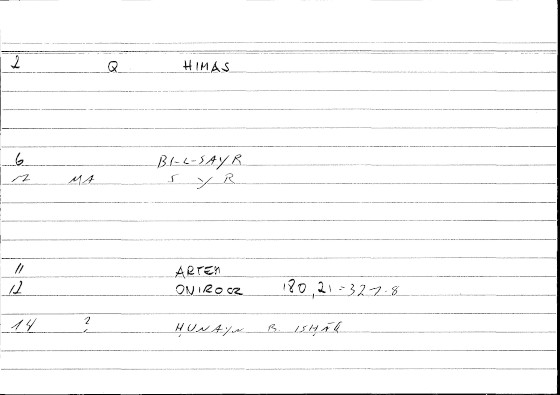 2 Q HIMAS
6 BI-L-SAYR
MA S Y R
11 ARTEM
12 ONIROCR 180, 21 = 327.8
14 ? ḤUNAYN B. ISḤĀQ